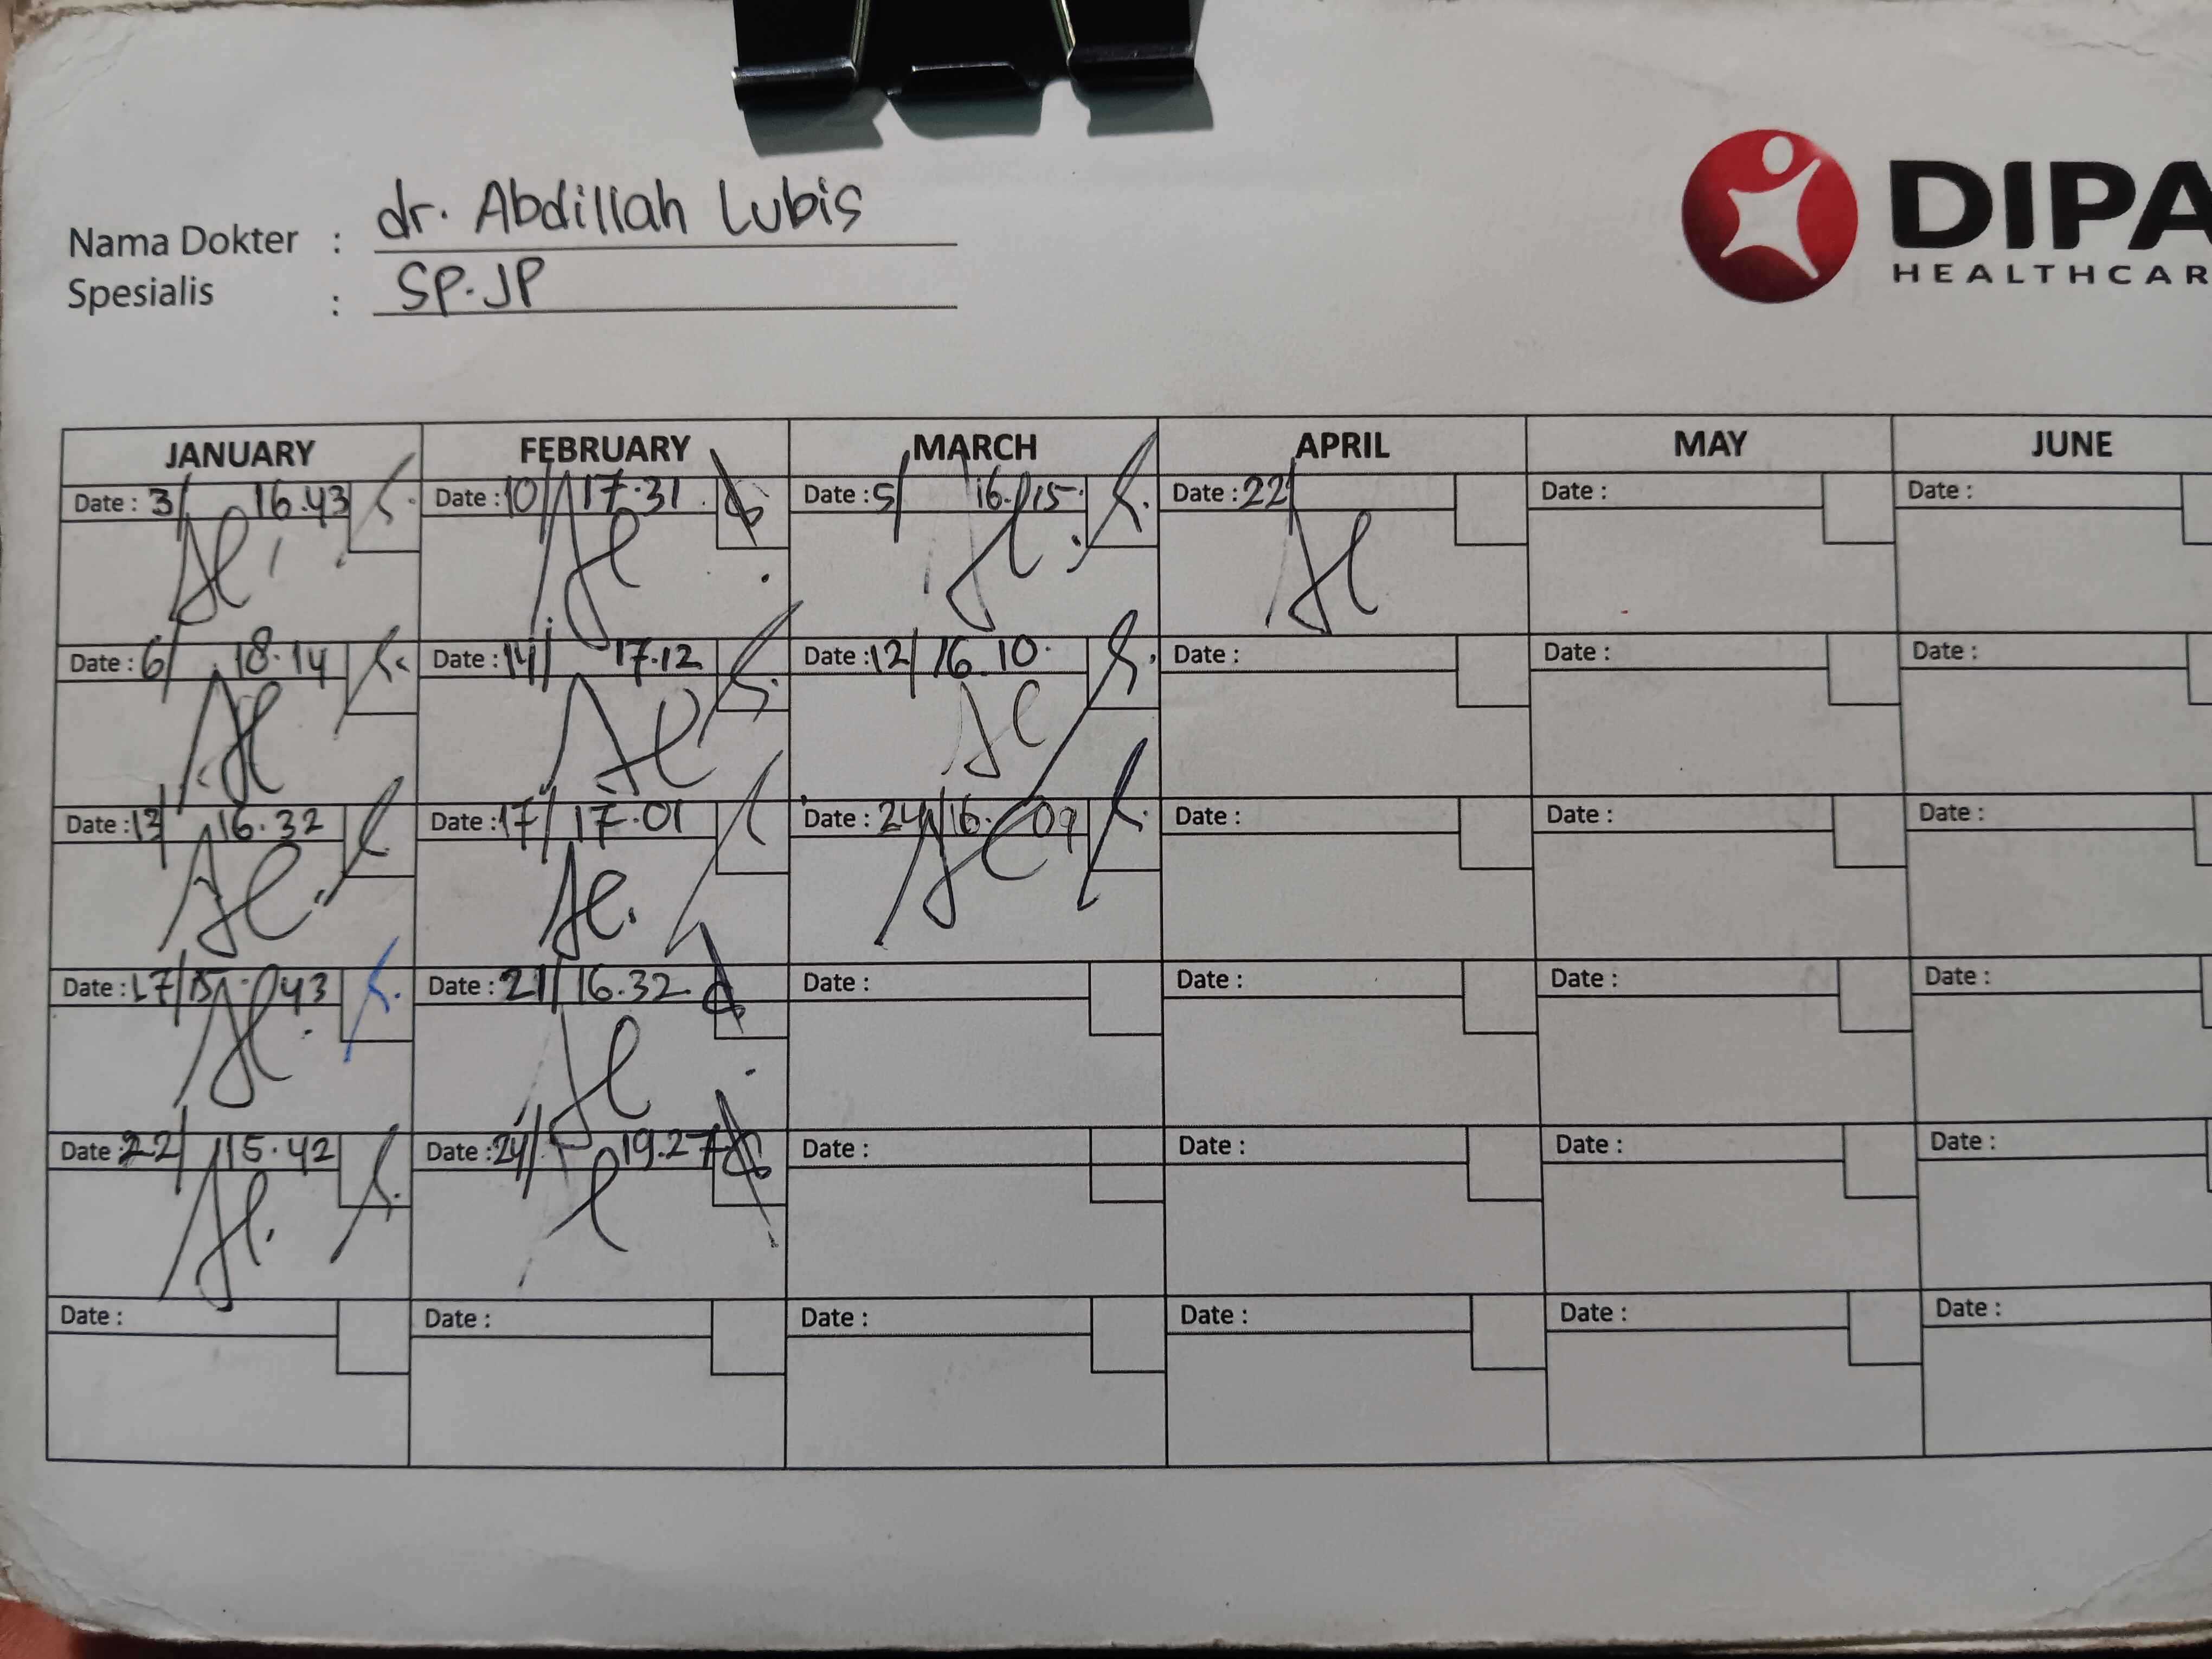 Nama Dokter : dr. Abdillah Lubis
Spesialis : SP.JP
DIPA
HEALTHCAR
JANUARY FEBRUARY MARCH APRIL MAY JUNE
Date : 3/ 16.43 Date : 10/ 17.31 Date : 5/ 16.15 Date : 22/ Date : Date :
Date : 6/ 18.14 Date : 14/ 17.12 Date : 12/ 16.10 Date : Date : Date :
Date : 13/ 16.32 Date : 17/ 17.01 Date : 24/ 16.09 Date : Date : Date :
Date : 17/ 15.43 Date : 21/ 16.32 Date : Date : Date : Date :
Date : 22/ 15.42 Date : 24/ 19.27 Date : Date : Date : Date :
Date : Date : Date : Date : Date : Date :